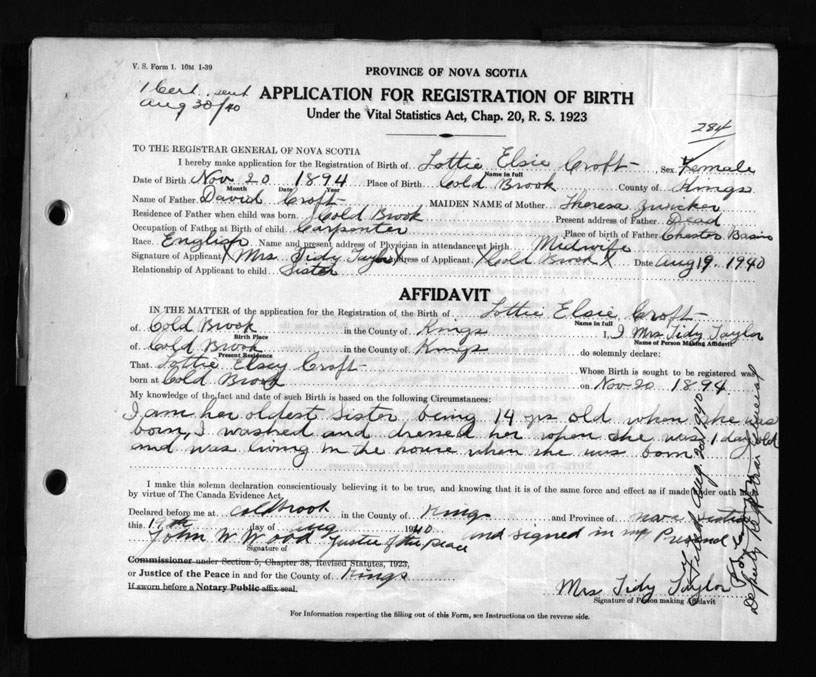 V. S. Form 1. 10M 1-39
PROVINCE OF NOVA SCOTIA
1 Cert. sent
Aug 30/40
APPLICATION FOR REGISTRATION OF BIRTH
Under the Vital Statistics Act, Chap. 20, R. S. 1923
284
TO THE REGISTRAR GENERAL OF NOVA SCOTIA
I hereby make application for the Registration of Birth of Lottie Elsie Croft Sex Female
Name in full
Date of Birth Nov 20 1894 Place of Birth Cold Brook County of Kings
Month Date Year
Name of Father David Croft MAIDEN NAME of Mother Theresa Zwicker
Residence of Father when child was born Cold Brook Present address of Father Dead
Occupation of Father at Birth of child Carpenter Place of birth of Father Chester Basin
Race. English Name and present address of Physician in attendance at birth Midwife
Signature of Applicant X Mrs Tidy Taylor X address of Applicant X Cold Brook X Date Aug 19. 1940
Relationship of Applicant to child Sister
AFFIDAVIT
IN THE MATTER of the application for the Registration of the Birth of Lottie Elsie Croft
Name in full
of Cold Brook in the County of Kings I, I Mrs Tidy Taylor
Birth Place
Name of Person Making Affidavit
of Cold Brook in the County of Kings do solemnly declare:
Present Residence
That Lottie Elsey Croft Whose Birth is sought to be registered was
born at Cold Brook on Nov 20 1894
My knowledge of the fact and date of such Birth is based on the following Circumstances:
I am her oldest sister being 14 yrs old when she was
born, I washed and dressed her when she was 1 day old
and was living in the house when she was born
I make this solemn declaration conscientiously believing it to be true, and knowing that it is of the same force and effect as if made under oath and
by virtue of The Canada Evidence Act.
Declared before me at Coldbrook in the County of Kings and Province of Nova Scotia
this 19th day of Aug 1940 and signed in my Presence
John W Wood Justice of the peace
Signature of
Commissioner under Section 5, Chapter 38, Revised Statutes, 1923,
or Justice of the Peace in and for the County of Kings
If sworn before a Notary Public affix seal.
Mrs Tidy Taylor
Signature of Person making Affidavit
For Information respecting the filling out of this Form, see Instructions on the reverse side.
Filed Aug. 1940
Deputy Registrar General